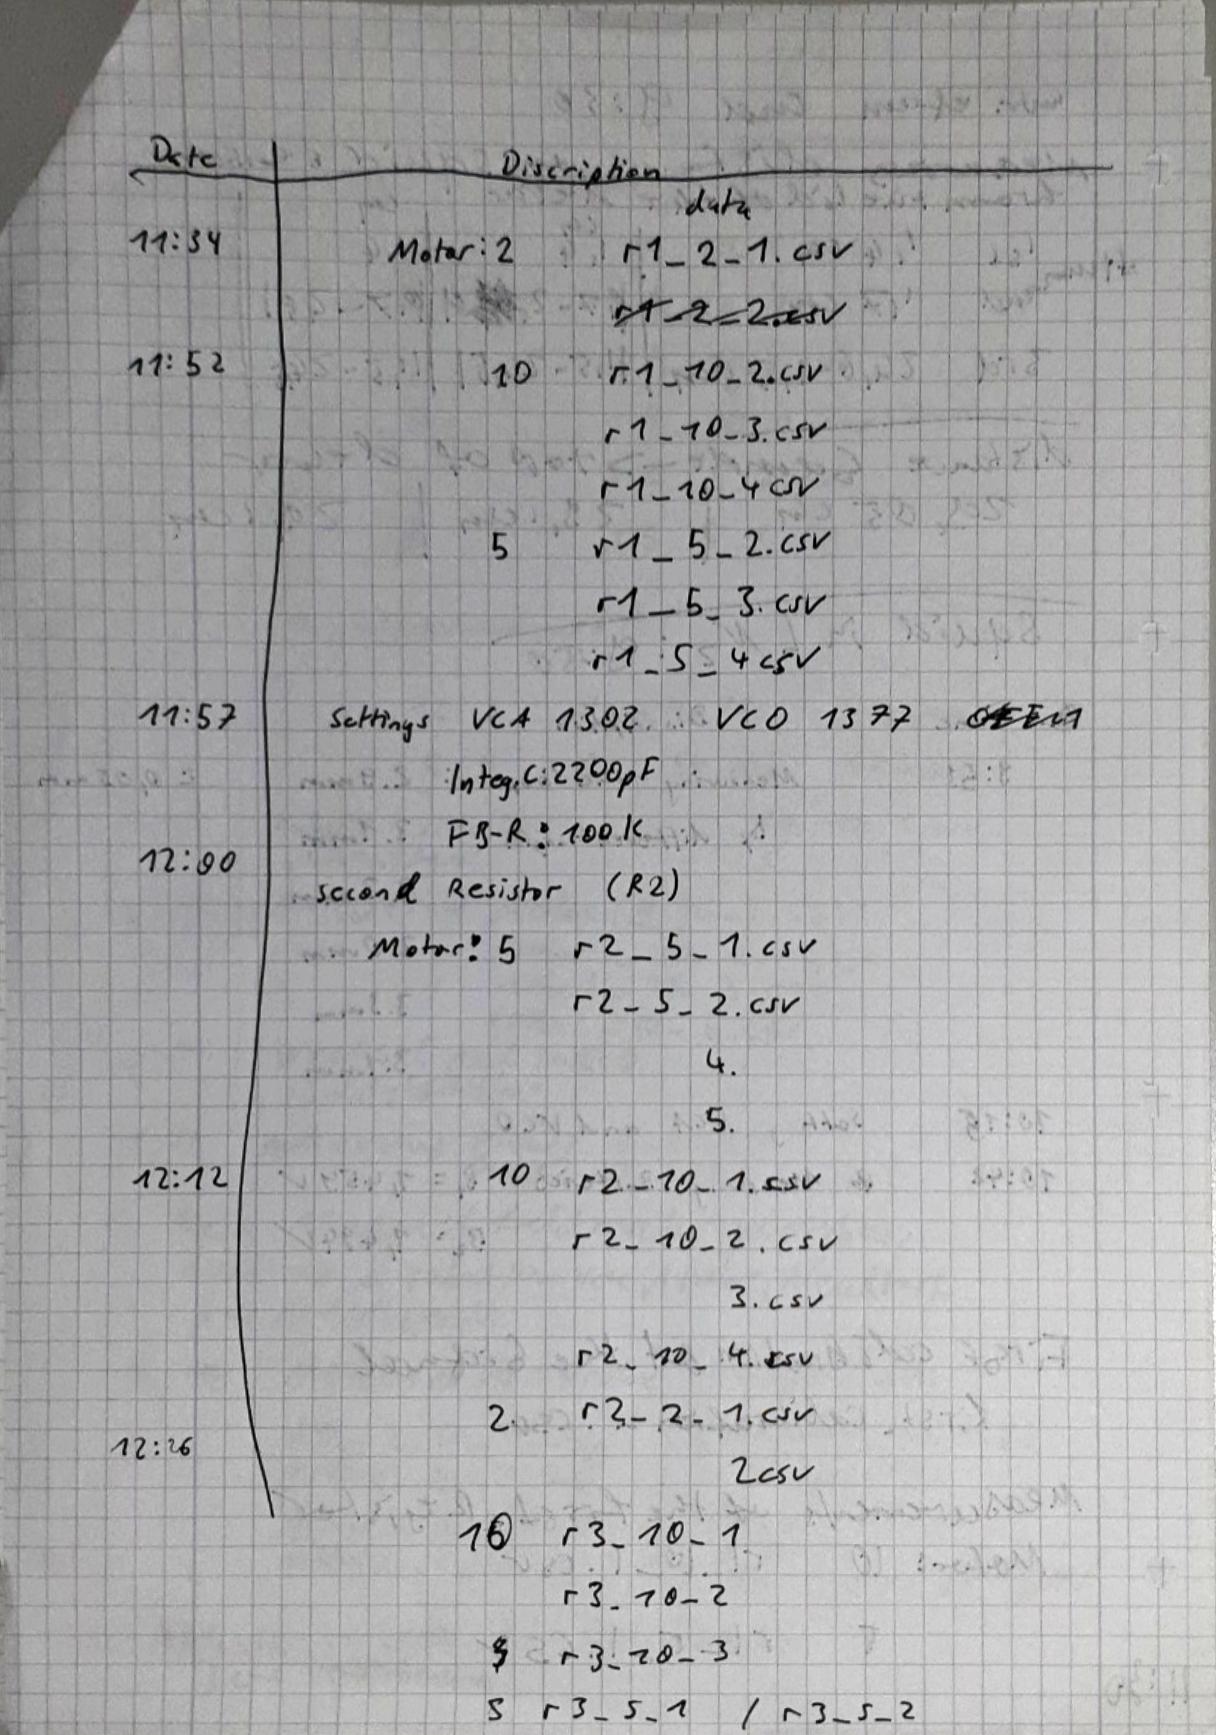 Date Discription
data
11:34 Motor: 2 r1_2_1.csv
r1_2_2.csv
11:52 10 r1_10_2.csv
r1_10_3.csv
r1_10_4csv
5 r1_5_2.csv
r1_5_3.csv
r1_5_4csv
11:57 Settings VCA 1302 VCO 1377
Integ.C:2200pF
FB-R: 100K
12:00
second Resistor (R2)
Motor: 5 r2_5_1.csv
r2_5_2.csv
4.
5.
12:12 10 r2_10_1.csv
r2_10_2.csv
3.csv
r2_10_4.csv
2 r2_2_1.csv
12:26
2csv
10 r3_10_1
r3_10_2
r3_10_3
5 r3_5_1 / r3_5_2